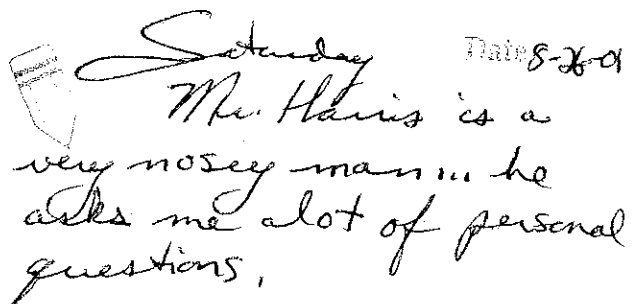 Saturday Date 8-26-01
Mr. Harris is a
very nosey man... he
asks me alot of personal
questions.